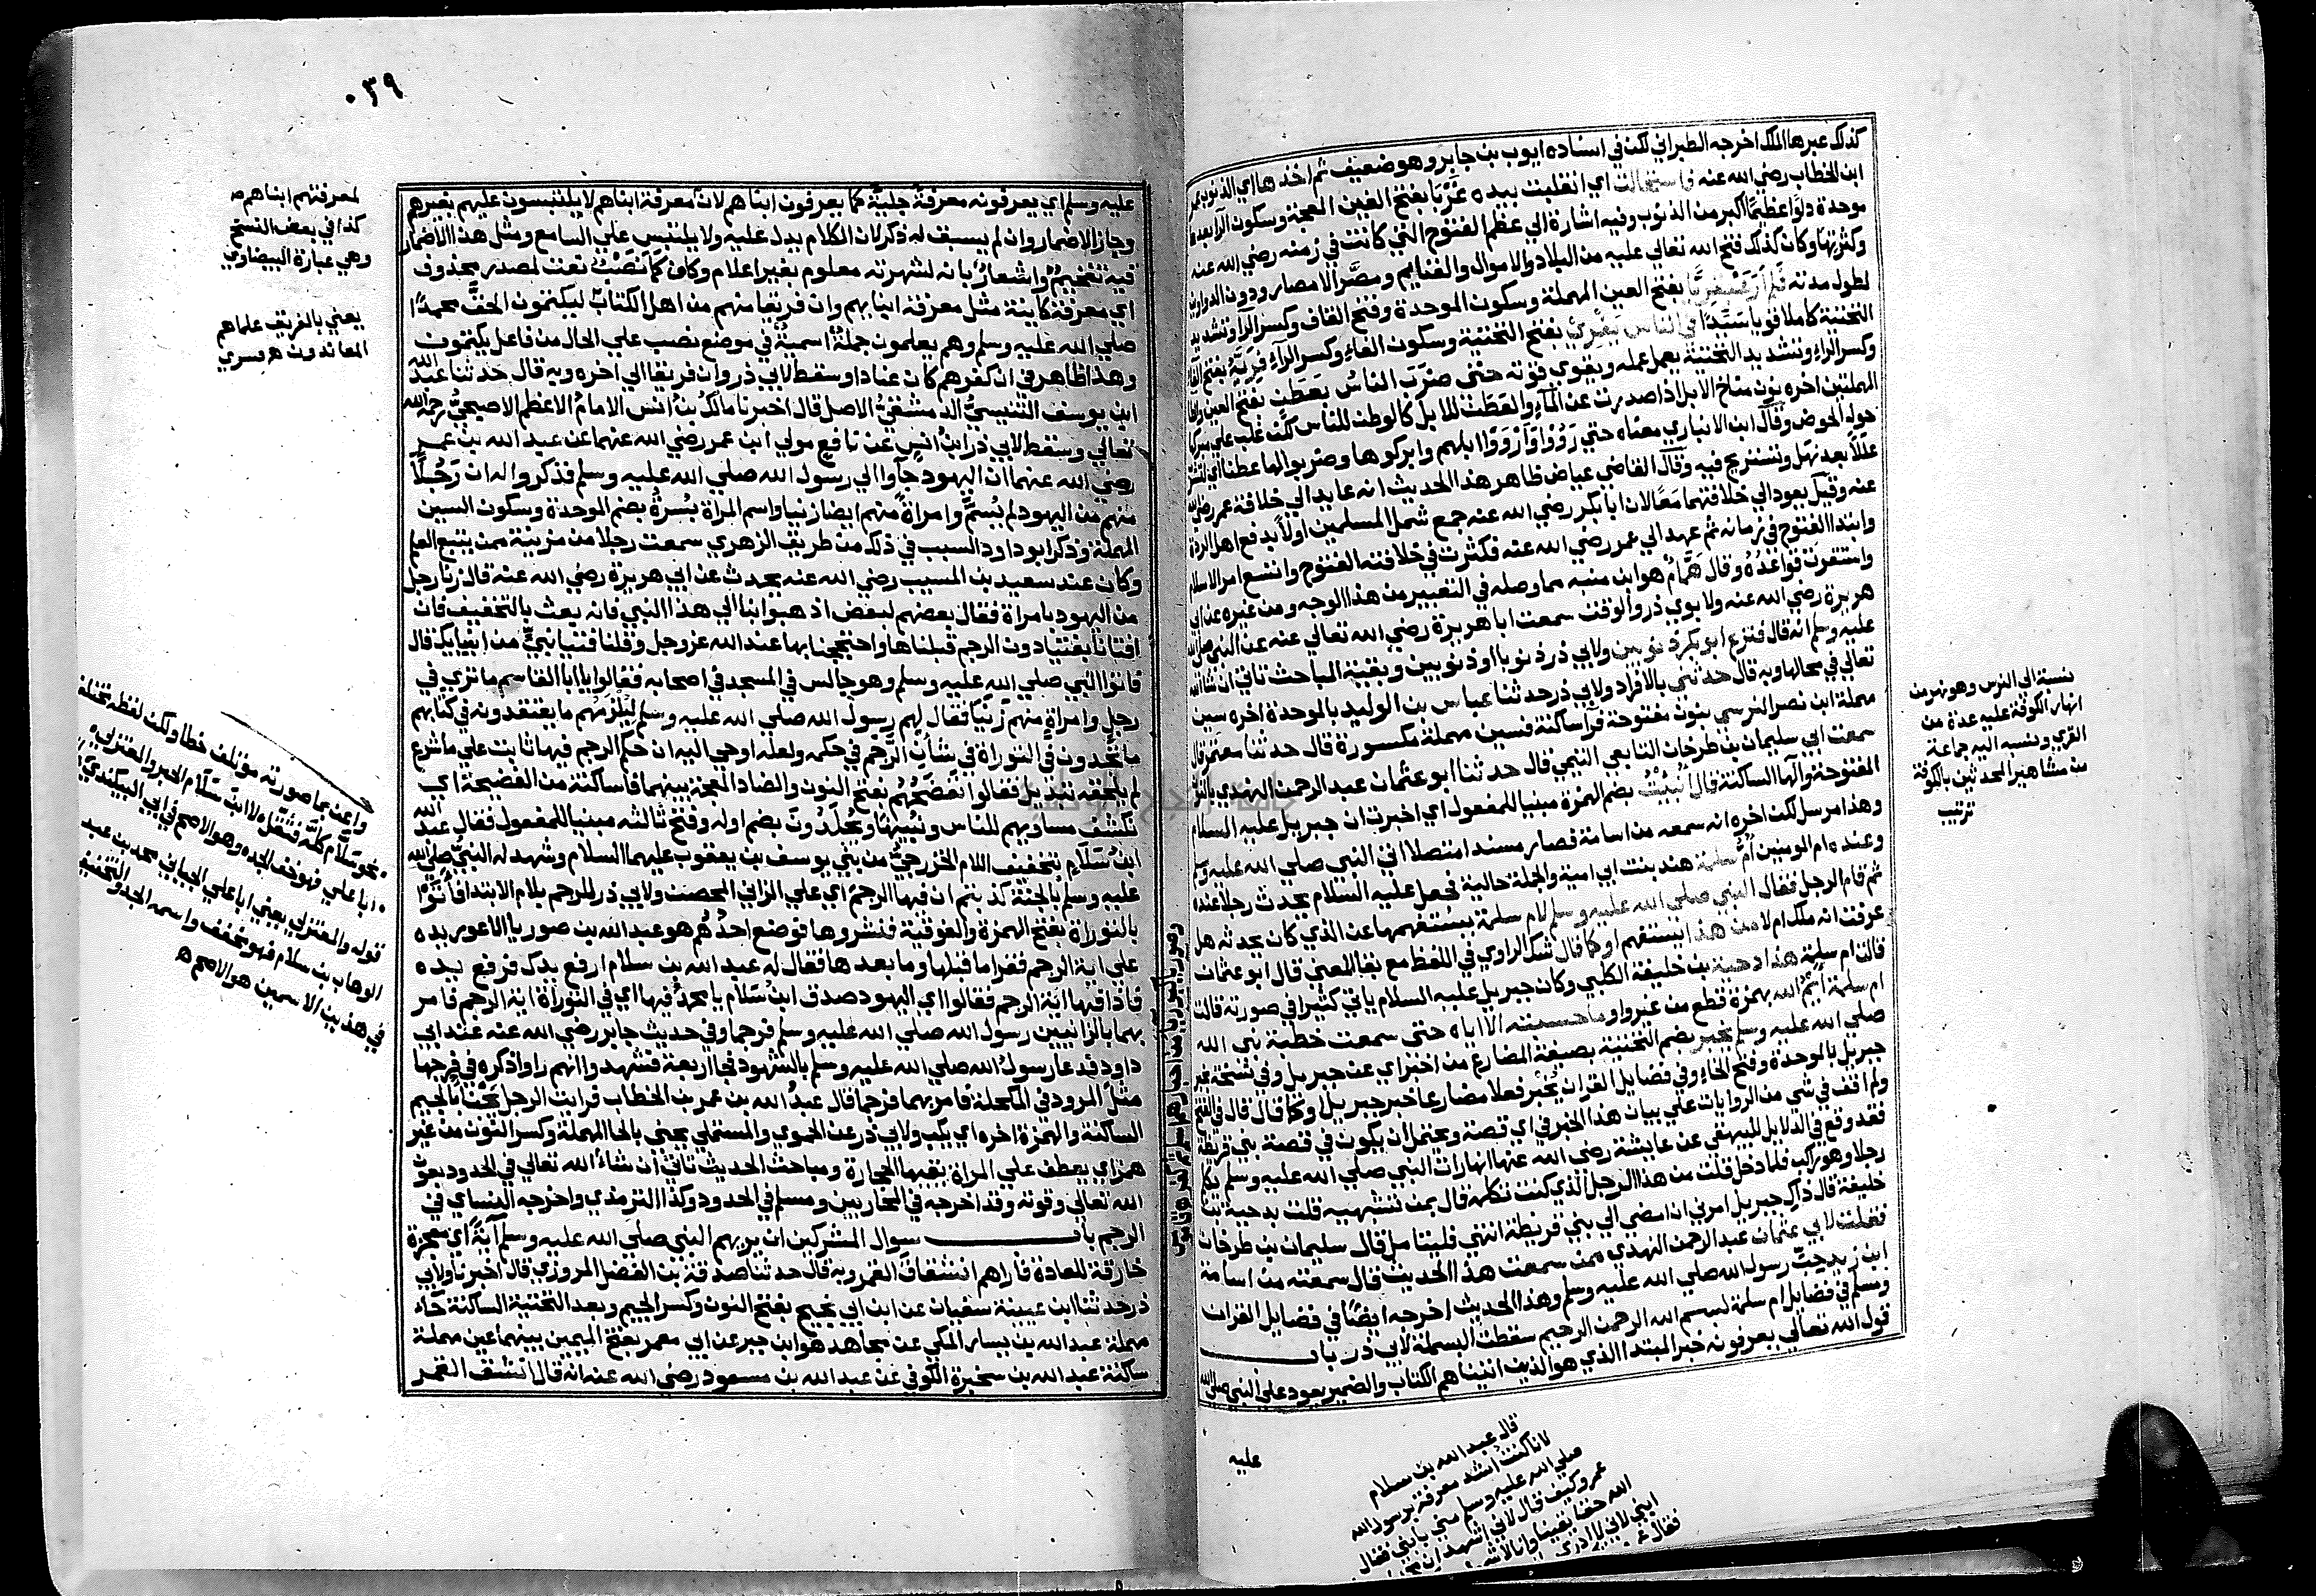 كذلك عبرها الملك اخرجه الطبراني لكن في اسناده ايوب بن جابر وهو ضعيف ثم اخذها اي الذنوب عمر
ابن الخطاب رضي الله عنه فاستحالت اي انقلبت بيده غَرْبًا بفتح الغين المعجمة وسكون الراء بعدها
موحدة دلوا عظيما اكبر من الذنوب وفيه اشارة الي عظم الفتوح التي كانت في زمنه رضي الله عنه
وكثرتها وكان كذلك فتح الله تعالي عليه من البلاد والاموال والغنايم ومصّر الامصار ودون الدواوين
لطول مدته فلم ار عبقريا بفتح العين المهملة وسكون الموحدة وفتح القاف وكسر الراء وتشديد
التحتية كاملا قويا سيدا في الناس يَفْرِي بفتح التحتية وسكون الفاء وكسر الراء فَرِيَّهُ بفتح الفا
وكسر الراء وتشديد التحتية يعمل عمله ويقوي قوته حتي ضرب الناس بعطن بفتح العين والطا
المهملتين اخره نون مناخ الابل اذا صدرت عن الماء والعطن للابل كالوطن للناس لكن غلب علي مبركها
حول الحوض وقال ابن الانباري معناه حتي رَوُوا وَأَرْوَوْا ابلهم وابركوها وضربوا لها عطنا اي لتشرب
عللا بعد نهل وتستريح فيه وقال القاضي عياض ظاهر هذا الحديث انه عايد الي خلافة عمر رضي الله
عنه وقيل يعود الي خلافتهما معا لان ابا بكر رضي الله عنه جمع شمل المسلمين اولا بدفع اهل الردة
وابتدا الفتوح في زمانه ثم عهد الي عمر رضي الله عنه فكثرت في خلافته الفتوح واتسع امر الاسلام
واستقرت قواعده وقال هَمَّامٌ هو ابن منبه مما وصله في التعبير من هذا الوجه ومن غيره عن ابي
هريرة رضي الله عنه ولابوي ذر والوقت سمعت ابا هريرة رضي الله تعالي عنه عن النبي صلي الله
عليه وسلم انه قال فنزع ابو بكر ذنوبين ولابي ذر ذنوبا او ذنوبين وبقية المباحث تاتي ان شا الله
تعالي في محالها وبه قال حدثني بالافراد ولابي ذر حدثنا عباس بن الوليد بالموحدة اخره سين
مهملة ابن نصر النرسي بنون مفتوحة فراء ساكنة فسين مهملة مكسورة قال حدثنا معتمر قال
سمعت ابي سليمان بن طرخان التابعي التيمي قال حدثنا ابو عثمان عبد الرحمن النهدي بالنون
المفتوحة والها الساكنة قال أُنْبِئْتُ بضم الهمزة مبنيا للمفعول اي اخبرت ان جبريل عليه السلام
وهذا مرسل لكن اخره انه سمعه من اسامة فصار مسندا متصلا اتي النبي صلي الله عليه وسلم
وعنده ام المومنين ام سلمة هند بنت ابي امية والجملة حالية فجعل عليه السلام يحدث رجلا عنده
ثم قام الرجل فقال النبي صلي الله عليه وسلم لام سلمة يستفهمها عن الذي كان يحدثه هل
عرفت انه ملك ام لا من هذا يستفهم او كما قال شك الراوي في اللفظ مع بقا المعني قال ابو عثمان
قالت ام سلمة هذا دحية بن خليفة الكلبي وكان جبريل عليه السلام ياتي كثيرا في صورته قالت
ام سلمة أيم الله بهمزة قطع من غير واو ما حسبته الا اياه حتي سمعت خطبة نبي الله
صلي الله عليه وسلم يخبر بضم التحتية بصيغة المضارع من اخبر اي عن جبريل وفي نسخة بخبر
جبريل بالموحدة وفتح الخاء وفي فضايل القران يخبر فعلا مضارعا خبر جبريل او كما قال قال في الفتح
ولم اقف في شي من الروايات علي بيان هذا الخبر في اي قصة ويحتمل ان يكون في قصة بني قريظة
فقد وقع في الدلايل للبيهقي عن عايشة رضي الله عنها انها رات النبي صلي الله عليه وسلم يكلم
رجلا وهو راكب فلما دخل قلت من هذا الرجل الذي كنت تكلمه قال بمن تشبهيه قلت بدحية بن
خليفة قال ذاك جبريل امرني ان امضي الي بني قريظة انتهي فليتامل قال سليمان بن طرخان
فقلت لابي عثمان عبد الرحمن النهدي ممن سمعت هذا الحديث قال سمعته من اسامة
ابن زيد حِبّ رسول الله صلي الله عليه وسلم وهذا الحديث اخرجه ايضا في فضايل القران
ومسلم في فضايل ام سلمة بسم الله الرحمن الرحيم سقطت البسملة لابي ذر باب
قول الله تعالي يعرفونه خبر المبتدا الذي هو الذين اتيناهم الكتاب والضمير يعود علي النبي صلي الله
عليه
نسبة الي النرس وهو نهر من
انهار الكوفة عليه عدة من
القري وينسب اليه جماعة
من مشاهير المحدثين بالكوفة
ترتيب
قال عبد الله بن سلام
لانا كنت اشد معرفة برسول الله
صلي الله عليه وسلم مني بابني فقال
عمر وكيف قال لاني اشهد ان محمدا
الله حقا يقينا وانا لا اشهد
ابني لاني لا ادري
فقال عمر
٠٣٩
عليه وسلم اي يعرفونه معرفة جلية كما يعرفون ابناهم لان معرفة ابناهم لا يلتبسون عليهم بغيرهم
وجاز الاضمار وان لم يسبق له ذكر لان الكلام يدل عليه ولا يلتبس علي السامع ومثل هذا الاضمار
فيه تفخيم واشعار بانه لشهرته معلوم بغير اعلام وكاف كما نَصْبٌ نعت لمصدر محذوف
اي معرفة كاينة مثل معرفة ابنايهم وان فريقا منهم من اهل الكتاب ليكتمون الحق محمدا
صلي الله عليه وسلم وهم يعلمون جملة اسمية في موضع نصب علي الحال من فاعل يكتمون
وهذا ظاهر في ان كفرهم كان عنادا وسقط لابي ذر وان فريقا الي اخره وبه قال حدثنا عبد الله
ابن يوسف التنيسي الدمشقي الاصل قال اخبرنا مالك بن انس الامام الاعظم الاصبحي رحمه الله
تعالي وسقط لابي ذر ابن انس عن نافع مولي ابن عمر رضي الله عنهما عن عبد الله بن عمر
رضي الله عنهما ان اليهود جاوا الي رسول الله صلي الله عليه وسلم فذكروا له ان رَجُلًا
منهم من اليهود لم يُسَمَّ وامراة منهم ايضا زنيا واسم المراة بُسْرَةُ بضم الموحدة وسكون السين
المهملة وذكر ابو داود السبب في ذلك من طريق الزهري سمعت رجلا من مزينة ممن يتبع العلم
وكان عند سعيد بن المسيب رضي الله عنه يحدث عن ابي هريرة رضي الله عنه قال زنا رجل
من اليهود بامراة فقال بعضهم لبعض اذهبوا بنا الي هذا النبي فانه بعث بالتخفيف فان
افتانا بفتيا دون الرجم قبلناها واحتججنا بها عند الله عز وجل وقلنا فتيا نبي من انبيايك قال
فاتوا النبي صلي الله عليه وسلم وهو جالس في المسجد في اصحابه فقالوا يا ابا القاسم ما تري في
رجل وامراة منهم زنيا فقال لهم رسول الله صلي الله عليه وسلم لِيُلْزِمَهُم ما يعتقدونه في كتابهم
ما تجدون في التوراة في شان الرجم في حكمه ولعله اوحي اليه ان حكم الرجم فيها ثابت علي ما شرع
لم يلحقه تبديل فقالوا نَفْضَحُهُمْ بفتح النون والضاد المعجمة بينهما فا ساكنة من الفضيحة اي
نكشف مساويهم للناس ونبينها ويُجْلَدُونَ بضم اوله وفتح ثالثه مبنيا للمفعول فقال عبد الله
ابن سَلَامٍ بتخفيف اللام الخزرجي من بني يوسف بن يعقوب عليهما السلام وشهد له النبي صلي الله
عليه وسلم بالجنة كذبتم ان فيها الرجم اي علي الزاني المحصن ولابي ذر للرجم بلام الابتدا فأَتَوْا
بالتوراة بفتح الهمزة والفوقية فنشروها فوضع احدهم هو عبد الله بن صوريا الاعور يده
علي اية الرجم فقرا ما قبلها وما بعدها فقال له عبد الله بن سلام ارفع يدك فرفع يده
فاذا فيها اية الرجم فقالوا اي اليهود صدق ابن سلام يا محمد فيها اي في التوراة اية الرجم فامر
بهما بالزانيين رسول الله صلي الله عليه وسلم فرجما وفي حديث جابر رضي الله عنه عند ابي
داود فدعا رسول الله صلي الله عليه وسلم بالشهود فجا اربعة فشهدوا انهم راوا ذكره في فرجها
مثل المرود في المكحلة فامر بهما فرجما قال عبد الله بن عمر بن الخطاب فرايت الرجل يَجْنَأُ بالجيم
الساكنة والهمزة اخره اي يكب ولابي ذر عن الحموي والمستملي يحني بالحا المهملة وكسر النون من غير
همز اي يعطف علي المراة يقيها الحجارة ومباحث الحديث تاتي ان شاء الله تعالي في الحدود بعون
الله تعالي وقوته وقد اخرجه في المحاربين ومسلم في الحدود وكذا الترمذي واخرجه النساي في
الرجم باب سوال المشركين ان يريهم النبي صلي الله عليه وسلم آيَةً اي معجزة
خارقة للعادة فاراهم انشقاق القمر وبه قال حدثنا صدقة بن الفضل المروزي قال اخبرنا ولابي
ذر حدثنا ابن عيينة سفيان عن ابن ابي نجيح بفتح النون وكسر الجيم وبعد التحتية الساكنة حاء
مهملة عبد الله بن يسار المكي عن مجاهد هو ابن جبر عن ابي معمر بفتح الميمين بينهما عين مهملة
ساكنة عبد الله بن سخبرة الكوفي عن عبد الله بن مسعود رضي الله عنه انه قال انشق القمر
لمعرفتهم ابناهم ص
كذا في بعض النسخ
وهي عبارة البيضاوي
يعني بالفريق علماهم
المعاندون ه بيسري
واعن بما صورته مؤتلف خطا ولكن لفظه مختلف
نحو سَلَّام كله فثقّله لا ابن سَلَام الحبر والمعتزلي
ابا علي فهو خف الجد وهو الاصح في ابي البيكندي
قوله والمعتزلي يعني ابا علي الجبايي محمد بن عبد
الوهاب بن سلام فهو مخفف واسمه الجد والتخفيف
في هذين الاسمين هو الاصح ه